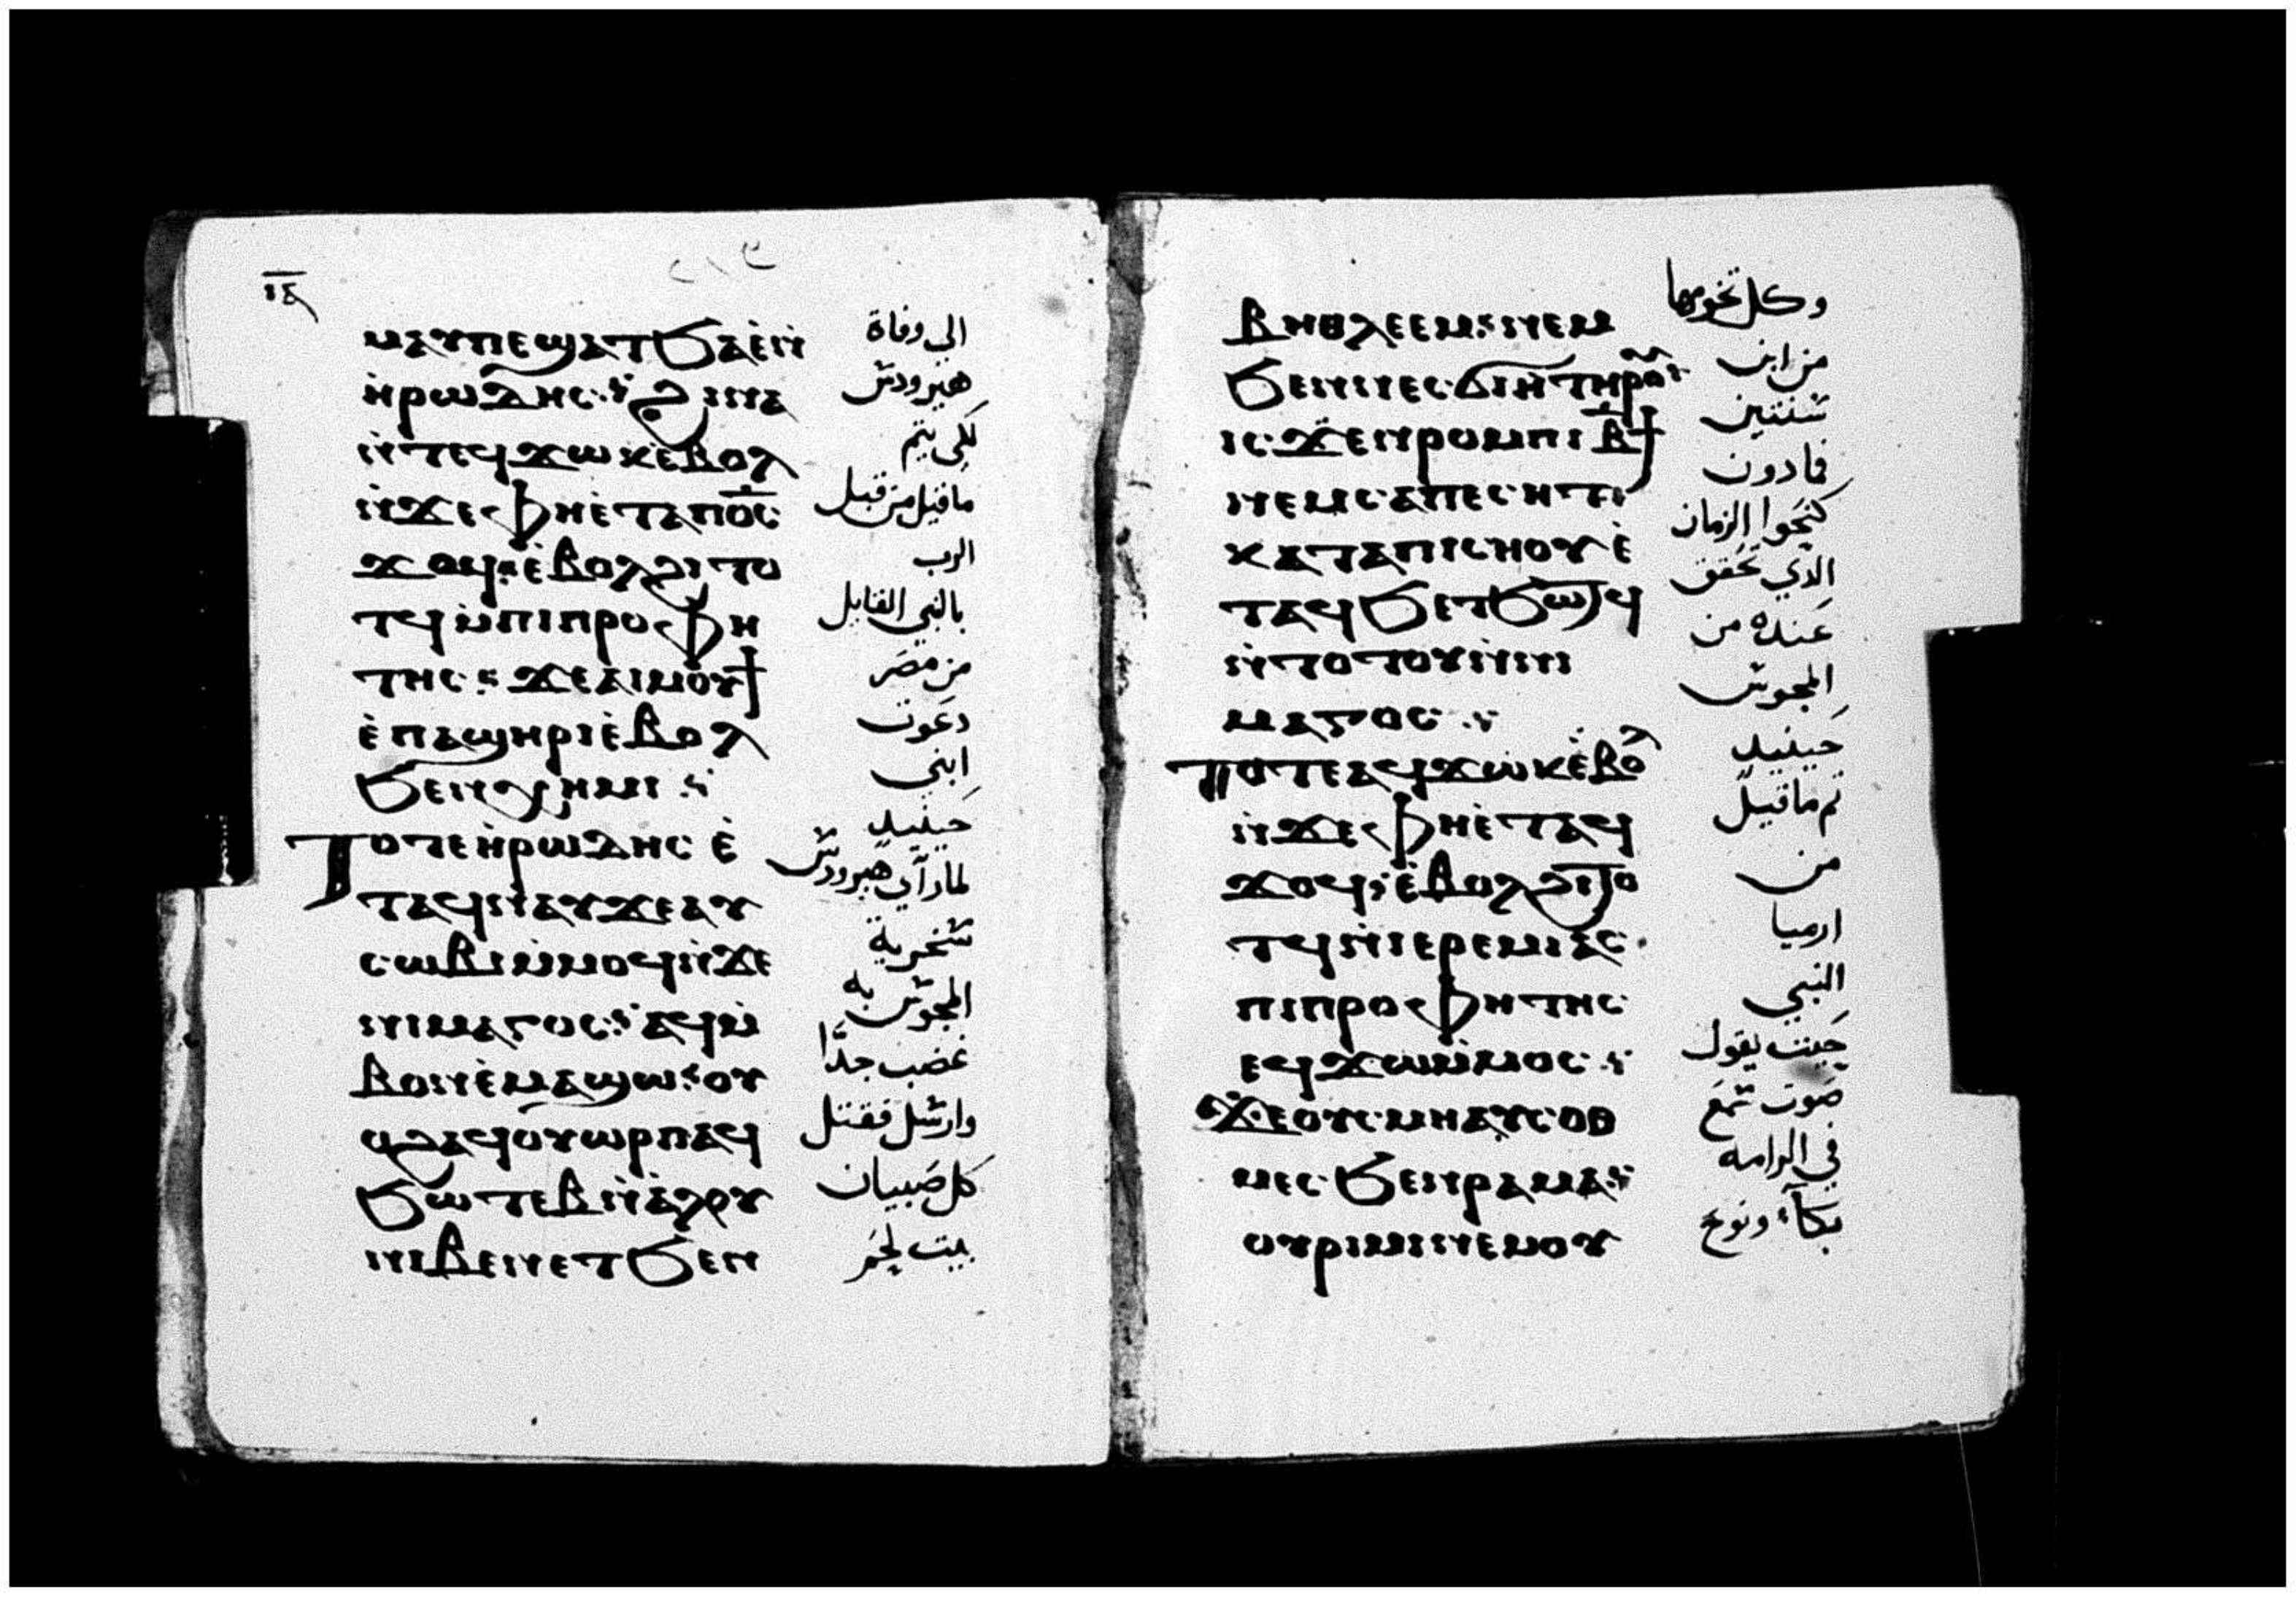 ⲓⲋ
ⲙⲁⲩⲡⲉϣⲁⲧϧⲁⲉ̀ⲛ̀
ⲏ̀ⲣⲱⲇⲏⲥ: ϩⲓⲛⲁ
ⲛ̀ⲧⲉϥϫⲱⲕⲉ̀ⲃⲟⲗ
ⲛ̀ϫⲉⲫⲏⲉ̀ⲧⲁⲡⲟ̅ⲥ̅
ϫⲟϥ: ⲉ̀ⲃⲟⲗϩⲓⲧⲟ
ⲧϥⲙ̀ⲡⲓⲡⲣⲟⲫⲏ
ⲧⲏⲥ: ϫⲉⲁⲓⲙⲟⲩϯ
ⲉ̀ⲡⲁϣⲏⲣⲓⲉ̀ⲃⲟⲗ
ϧⲉⲛⲭⲏⲙⲓ:
ⲧⲟⲧⲉⲏ̀ⲣⲱⲇⲏⲥ ⲉ̀
ⲧⲁϥⲛⲁⲩϫⲉⲁⲩ
ⲥⲱⲃⲓⲙ̀ⲙⲟϥⲛ̀ϫⲉ
ⲛⲓⲙⲁⲅⲟⲥ: ⲁϥⲙ̀
ⲃⲟⲛⲉ̀ⲙⲁϣⲱ: ⲟⲩ
ⲟϩⲁϥⲟⲩⲱⲣⲡⲁϥ
ϧⲱⲧⲉⲃⲛ̀ⲁ̀ⲗⲟⲩ
ⲛⲓⲃⲉⲛⲉⲧϧⲉⲛ
الي وفاة
هيرودس
لكي يتم
ما قيل من قبل
الرب
بالنبي القايل
من مصر
دعوت
ابني
حينيد
لما رآي هيرودس
سخرية
المجوس به
غضب جدًا
وارسل فقتل
كل صبيان
بيت لحم
ⲃⲏⲑⲗⲉⲉⲙ: ⲛⲉⲙ
ϧⲉⲛⲛⲉⲥϭⲓⲏⲧⲏⲣⲟⲩ:
ⲓⲥϫⲉⲛⲣⲟⲙⲡⲓⲃ̅ϯ
ⲛⲉⲙⲥⲁⲡⲉⲥⲏⲧ:
ⲕⲁⲧⲁⲡⲓⲥⲏⲟⲩⲉ̀
ⲧⲁϥϧⲉⲧϧⲱⲧϥ
ⲛ̀ⲧⲟⲧⲟⲩⲛ̀ⲛⲓ
ⲙⲁⲅⲟⲥ:
ⲧⲟⲧⲉⲁϥϫⲱⲕⲉ̀ⲃⲟⲗ
ⲛ̀ϫⲉⲫⲏⲉ̀ⲧⲁϥ
ϫⲟϥ: ⲉ̀ⲃⲟⲗϩⲓⲧⲟ
ⲧϥⲛ̀ⲓⲉⲣⲉⲙⲓⲁⲥ
ⲡⲓⲡⲣⲟⲫⲏⲧⲏⲥ
ⲉϥϫⲱⲙ̀ⲙⲟⲥ:
ϫⲉⲟⲩⲥⲙⲏⲁⲩⲥⲟⲑ
ⲙⲉⲥ ϧⲉⲛⲣⲁⲙⲁ:
ⲟⲩⲣⲓⲙⲓⲛⲉⲙⲟⲩ
وكل تخومها
من ابن
سنتين
فما دون
كنحوا الزمان
الدي تحقق
عنده من
المجوس
حينيد
تم ما قيل
من
ارميا
النبي
حيت يقول
صوت سمع
في الرامه
بكآء ونوح